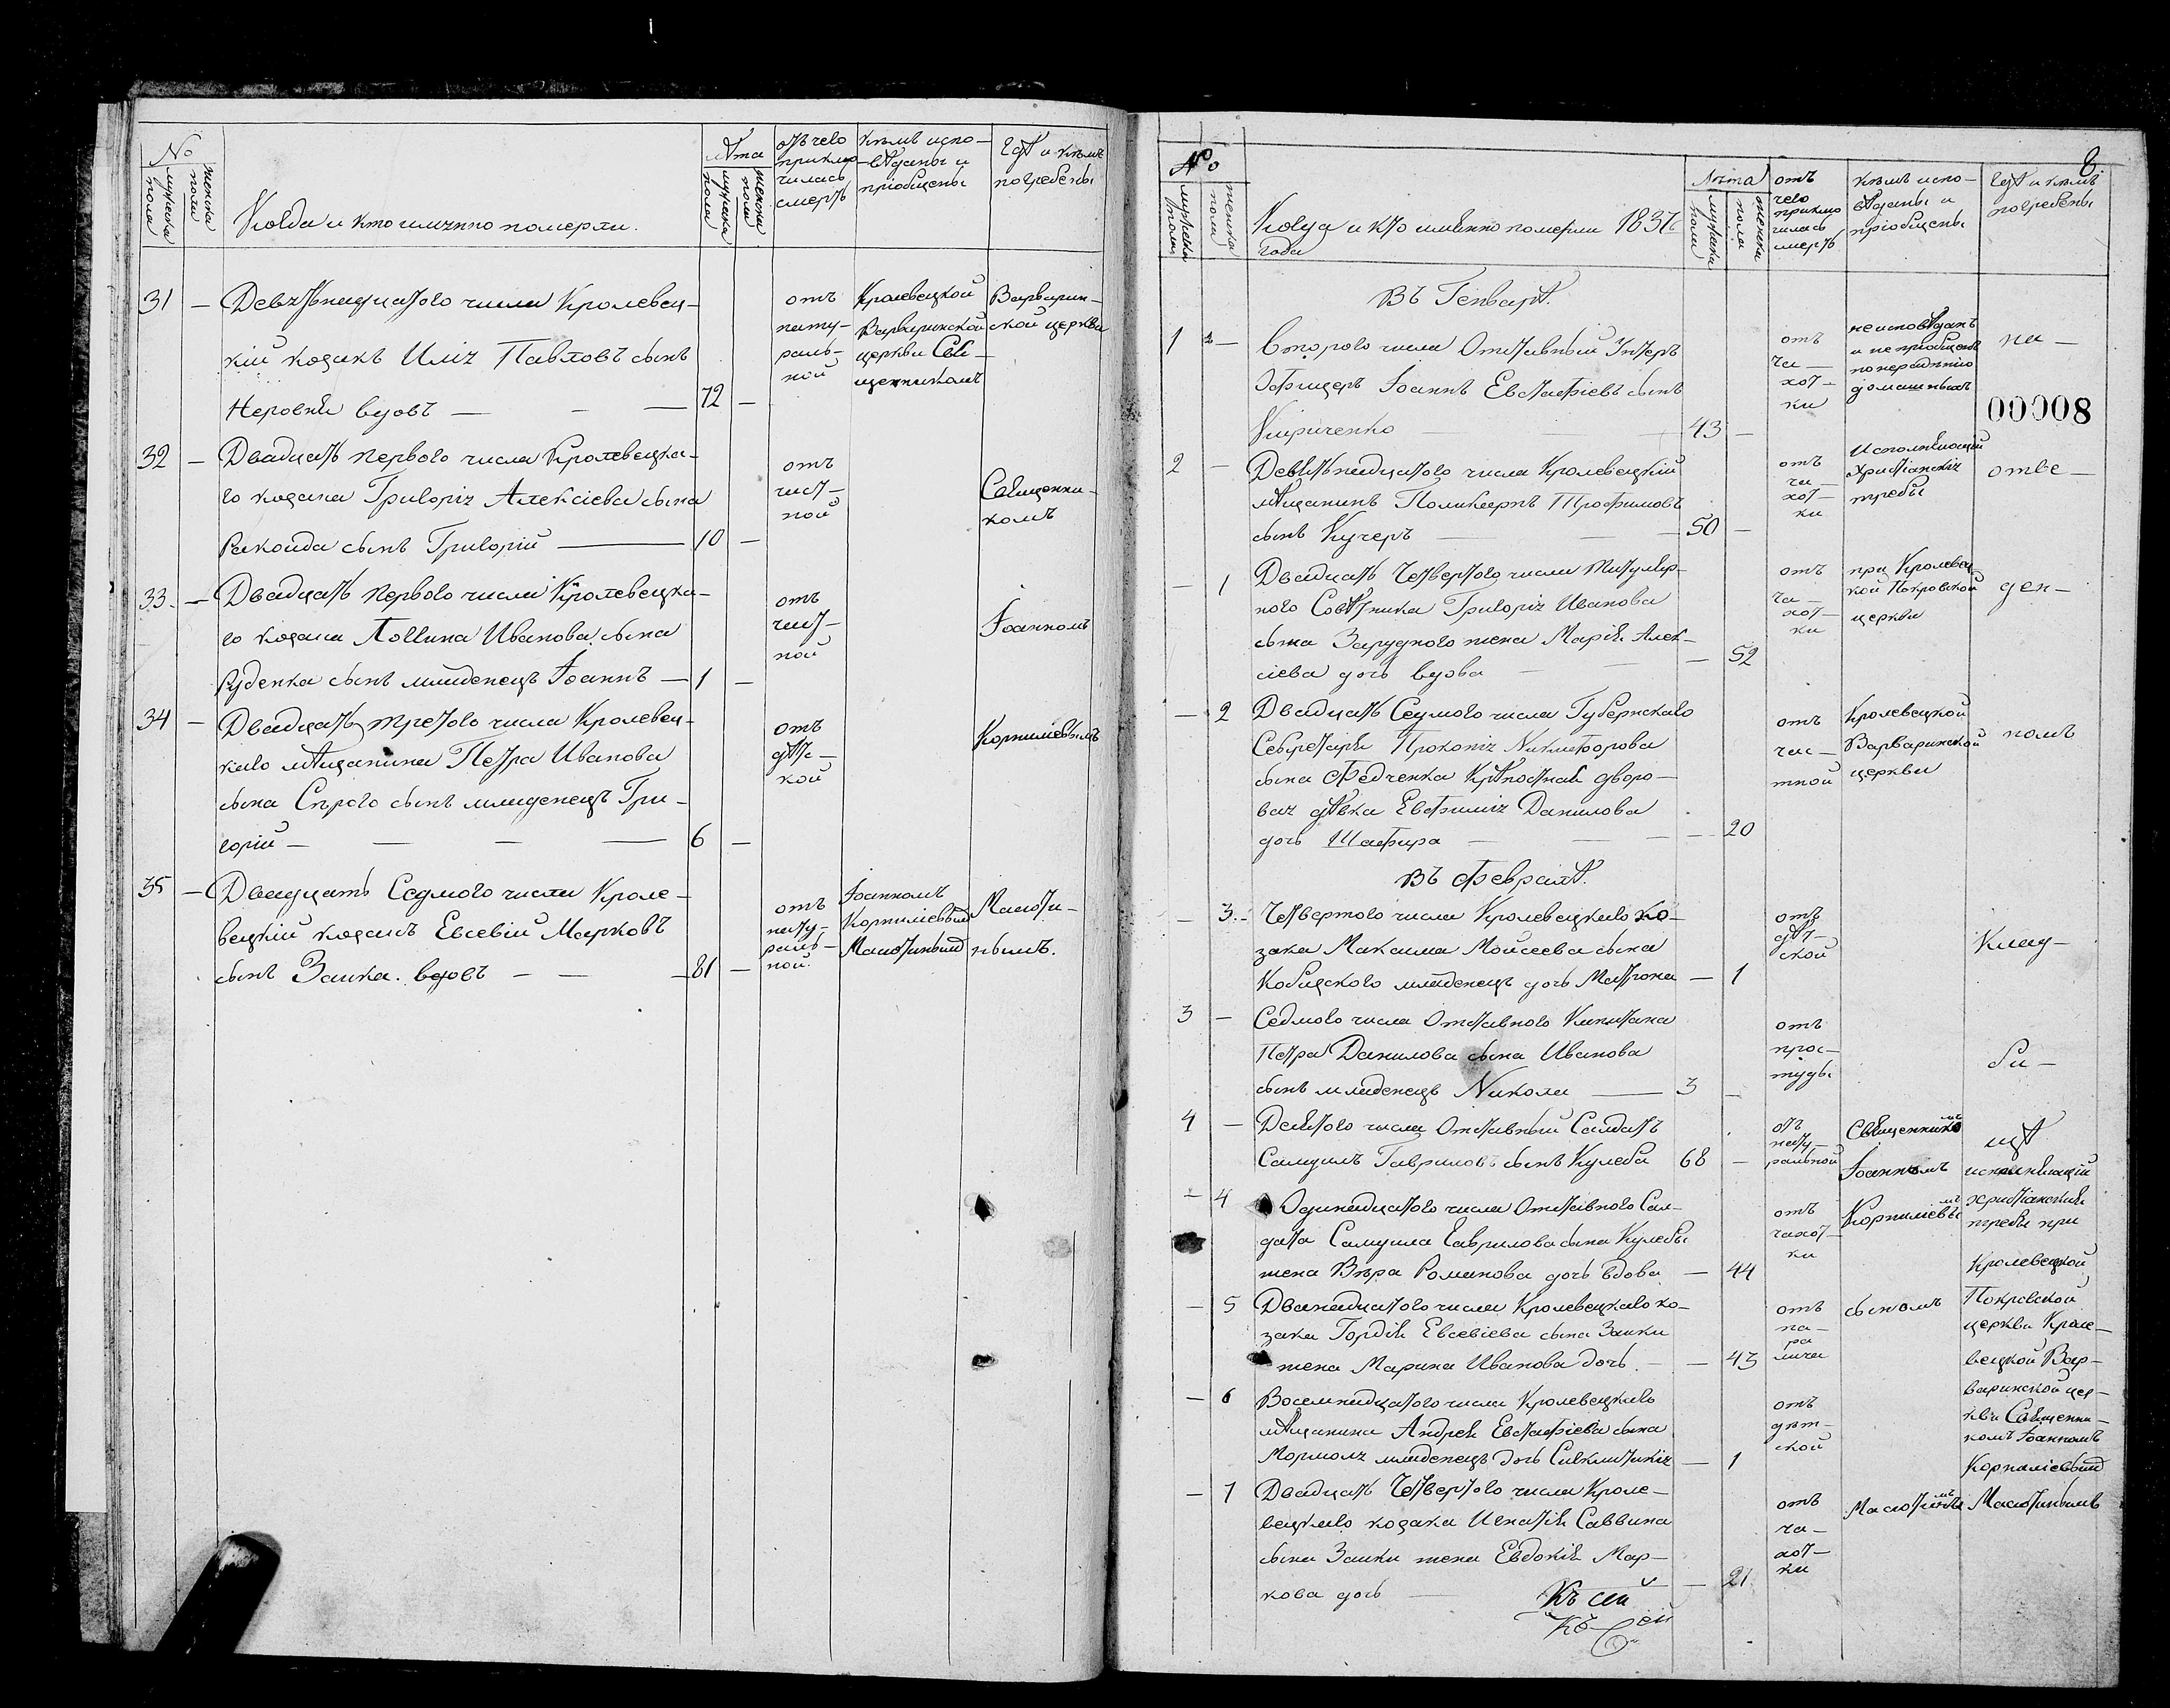 №
мужеска пола
женска пола
Когда и кто имянно померли.
лѣта
мужеска пола
женска пола
отъ чего
приклю
чилась
смерть
кѣмъ испо-
вѣданы и
пріобщены
гдѣ и кѣмъ
погребены
31 — Девятьнадцатого числа Кролевец-
кій козакъ Илія Павловъ сынъ
Неровня вдовъ — 72 —
отъ
нату-
раль-
ной
Кролевецкой
Варваринской
церкви Свя-
щенникомъ
Варварин-
ской церкви
32 — Двадцать первого числа Кролевецка-
го козака Григорія Алексіева сына
Ракоида сынъ Григорій — 10 —
отъ
чист-
ной
Священни-
комъ
33. — Двадцать первого числа Кролевецка-
го козака Логгина Иванова сына
Руденка сынъ младенецъ Іоаннъ — 1 —
отъ
чист-
ной
Іоанномъ
34 — Двадцать третого числа Кролевец-
каго мѣщанина Петра Иванова
сына Сѣрого сынъ младенецъ Гри-
горій — 6 —
отъ
дѣтс-
кой
Корниліевымъ
35 — Двадцать Седмого числа Кроле-
вецкій козакъ Евсевій Марковъ
сынъ Заика. вдовъ — 81 —
отъ
нату-
раль-
ной.
Іоанномъ
Корниліевым
Мастиным
Масти-
нымъ.
8
№
мужеска пола
женска пола
Когда и кто имянно померли 1837
года
лѣта
мужеска пола
женска пола
отъ
чего
приклю
чилась
смерть
кѣмъ испо-
вѣданы и
пріобщены
гдѣ и кѣмъ
погребены
Въ Генварѣ.
1 — Второго числа Отставный Унтеръ
Офицеръ Іоаннъ Евстафіевъ сынъ
Кириченко — 43 —
отъ
ча-
хот-
ки
неисповѣданъ
и не пріобщенъ
понерадѣнію
домашныхъ
на —
00008
2 — Девятьнадцатого числа Кролевецкій
мѣщанинъ Поликарпъ Трофимовъ
сынъ Кучеръ — 50 —
отъ
ча-
хот-
ки
Исполняющій
Христіанскія
требы
отве —
— 1 Двадцать Четвертого числа Титуляр-
ного Совѣтника Григорія Иванова
сына Зарудного жена Марія Алек-
сіева дочь вдова — 52
отъ
ча-
хот-
ки
при Кролевец
кой Покровской
церкви
ден —
— 2 Двадцать Седмого числа Губернскаго
Секретаря Прокопія Никифорова
сына Федченка Крѣпостная дворо-
вая дѣвка Евфимія Данилова
дочь Шафира — 20
отъ
час-
тной
Кролевецкой
Варваринской
церкви
номъ
Въ Февралѣ.
— 3. Четвертого числа Кролевецкаго ко-
зака Максима Моисеева сына
Кобидского младенецъ дочь Матрона — 1
отъ
дѣт-
ской
Клад —
3 — Седмого числа Отставного Капитана
Петра Данилова сына Иванова
сынъ младенецъ Николай — 3 —
отъ
прос-
туды
би —
4 — Девятого числа Отставный Салдатъ
Самуилъ Гавриловъ сынъ Кулеба 68 —
отъ
нату-
ральной
Священнико
мъ
Іоанномъ
щѣ
исправляющій
— 4 Одинадцатого числа Отставного Сал-
дата Самуила Гаврилова сына Кулебы
жена Вѣра Романова дочь вдова — 44
отъ
чахот-
ки
Корниліевы
мъ
христіанскія
требы при
Кролевецкой
— 5 Дванадцатого числа Кролевецкаго ко-
зака Гордія Евсевіева сына Заики
жена Марина Иванова дочь. — 43
отъ
па-
ра
лича
сыномъ
Покровской
церкви Кроле-
вецкой Вар-
— 6 Восемнадцатого числа Кролевецкаго
мѣщанина Андрея Евстафіева сына
Мормоля младенецъ дочь — 1
отъ
дѣт-
ской
варинской цер-
кви Священни-
комъ Іоанномъ
Корниліевымъ
— 7 Двадцать Четвертого числа Кроле-
вецкаго козака Игнатія Саввина
сына Заики жена Евдокія Мар-
кова дочь — 21.
отъ
ча-
хот-
ки
Мастины
мъ
Мастинымъ
Къ сей
Къ Сей